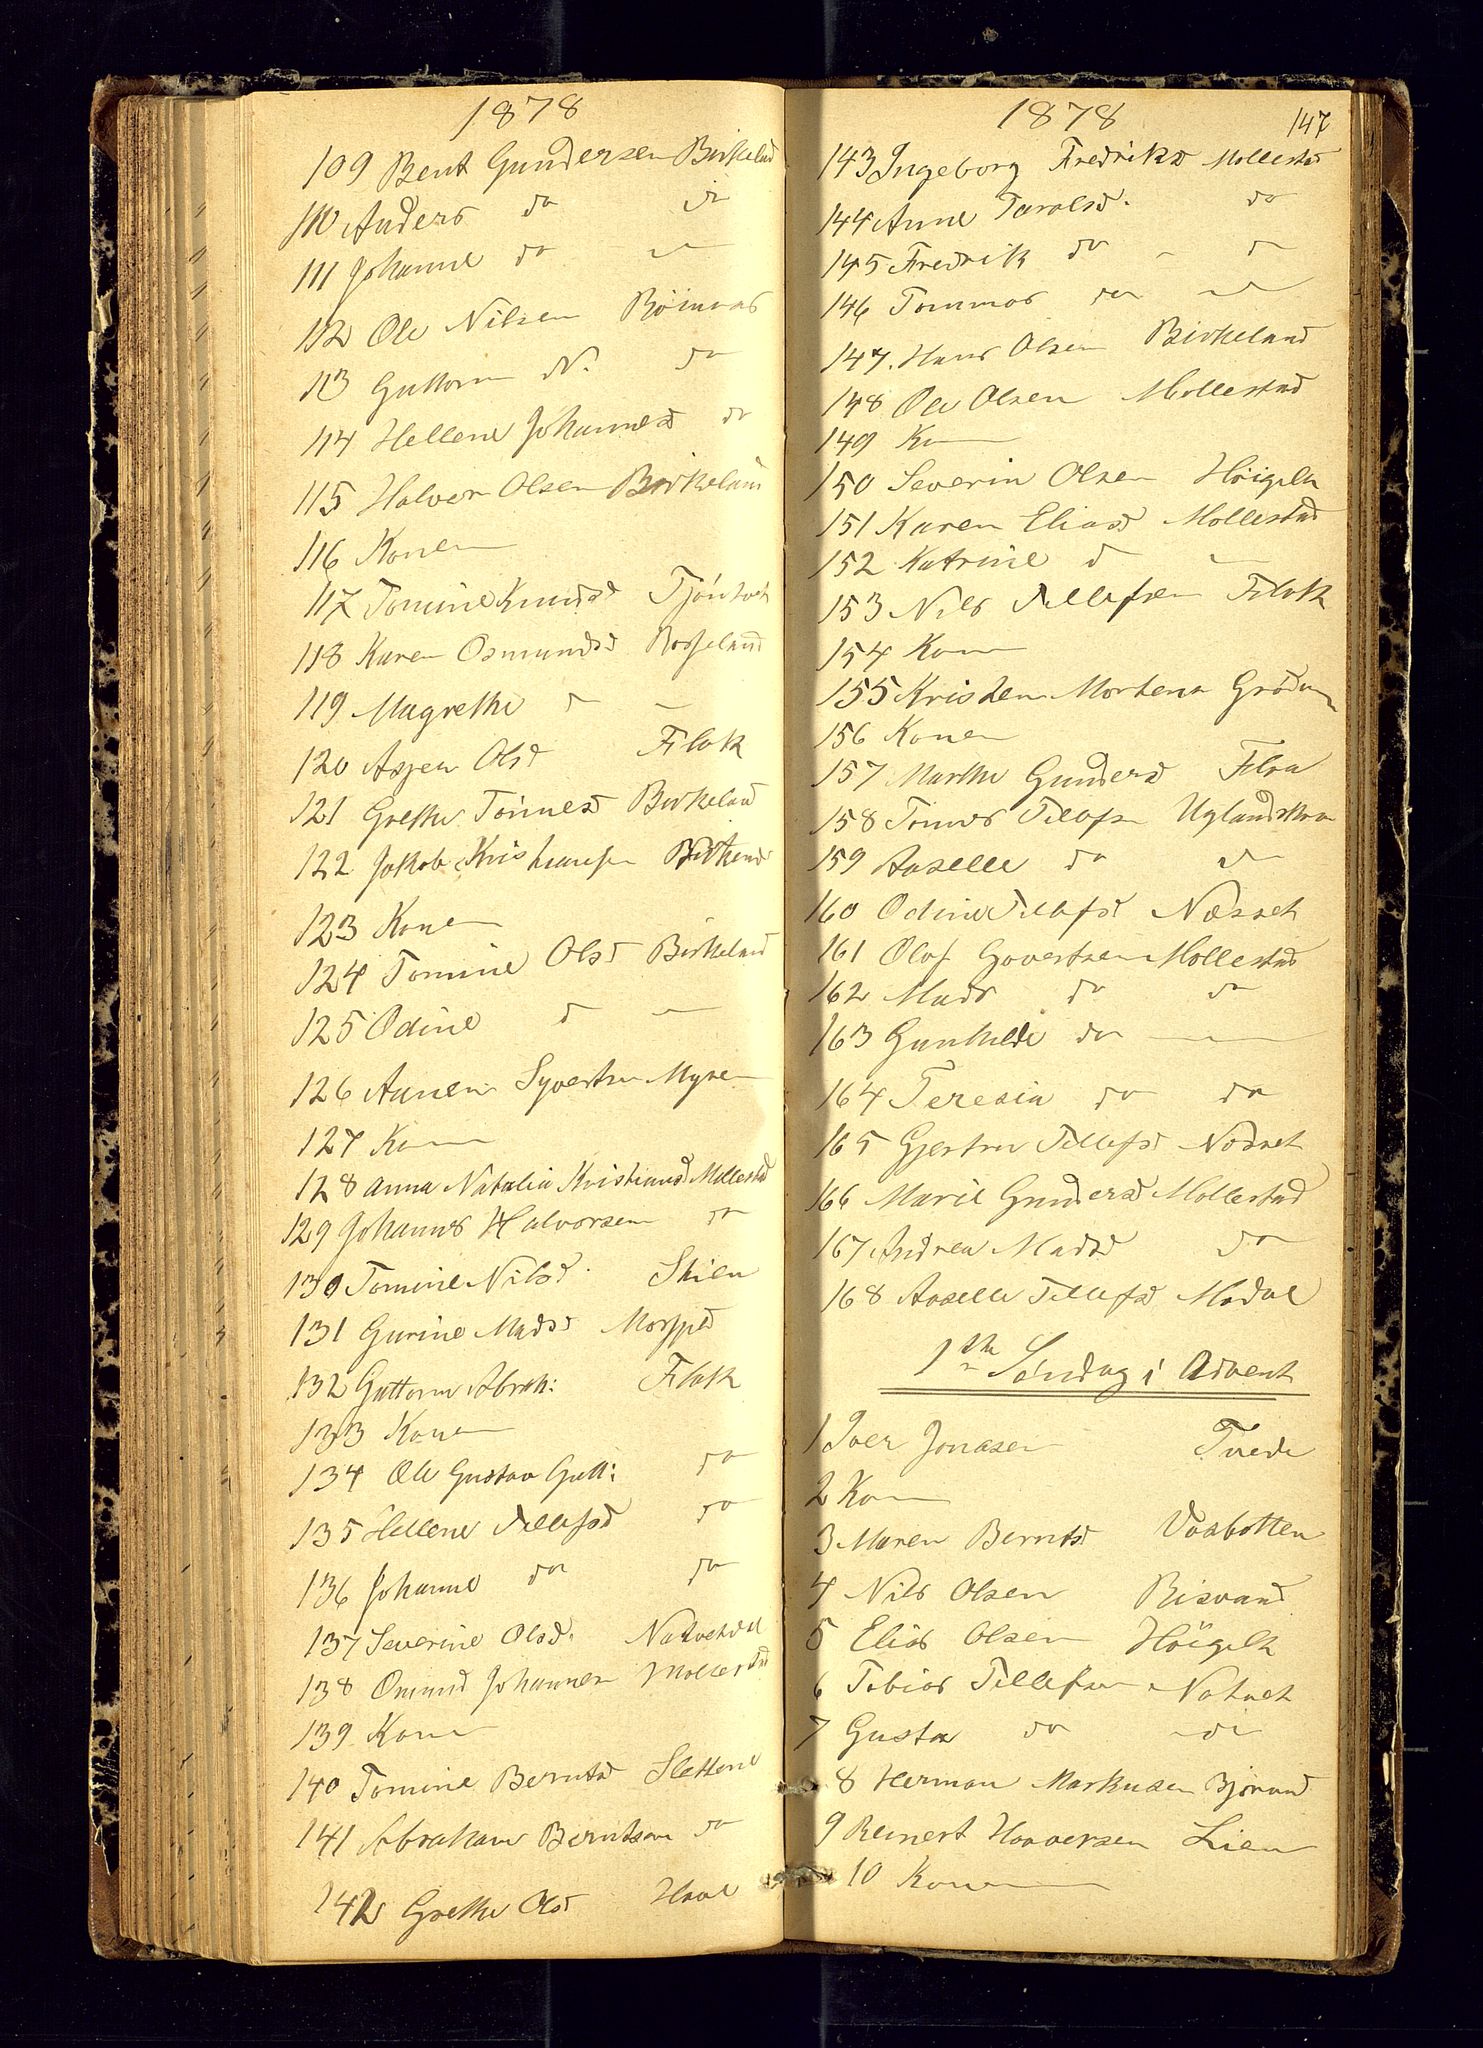 1878
109 Bent Gundersen Birkeland
110 Anders do do
111 Johanne do —
112 Ole Nilsen
113 Guttorm N. do
114 Hellene Johannesd do
115 Halvor Olsen Birkeland
116 Konen
117 Tomine Knudsd
118 Karen Osmundsd Rosseland
119 Magrethe d —
120 Asjer Olsd Flak
121 Grethe Tönnesd Birkeland
122 Jakob Kristiansen
123 Konen
124 Tomine Olsd Birkeland
125 Odine d —
126 Syvertsen Myren
127 Kon
128 Anna Natalia Kristiansd Mollestad
129 Johannes Halvorsen do
130 Tomine Nilsd. Skien
131 Gurine Madsd
132 Guttorm Abrah: Flak
133 Konen
134 Ole Gustav Gutt: do
135 Hellene Tellefsd do
136 Johanne do do
137 Severine Olsd.
138 Omund Johannesn Mollestad
139 Kone
140 Tomine Berntsd Slettene
141 Abraham Berntsen do
142 Grethe Olsd
1878 147
143 Ingeborg Fredriksd Mollestad
144 Anne Taralsd. do
145 Fredrik do – d
146 Tommas do —
147. Hans Olsen Birkeland
148 Ole Olsen Mollestad
149 Kon
150 Severin Olsen Höigelt
151 Karen Eliasd Mollestad
152 Katrine d —
153 Nils Tellefsen Flak
154 Kon
155 Kristen Mortensn
156 Konen
157 Marthe Gundersd Flaa
158 Tönnes Tellefsn
159 Aaselle do do
160 Odine Tellefsd Næsset
161 Olaf Govertsen Mollestad
162 Mads do do
163 Gunhilde do —
164 Teresia do do
165 Gjertru Tellefsd
166 Marie Gundersd Mollestad
167 Andrea Madsd do
168 Aaselle Tellefsd
1ste Söndag i Advent
1 Iver Jonasen Tvede
2 Kon
3 Maren Berntsd Vasbotten
4 Nils Olsen Risvand
5 Elias Olsen Höigelt
6 Tobias Tellefsen
7 Gustav do do
8 Herman Markusen Bjorvand
9 Reinert Haavorsen Lien
10 Konen